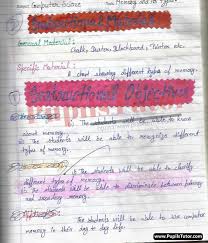 Computer Science
Memory and its Types
Instructional Materials
General Material:
Chalk, Duster, Blackboard, Pointer etc.
Specific Material:
A chart showing different types of memory.
Instructional Objectives
The students will be able to know
about memory.
The students will be able to recognize different
types of memory.
The students will be able to classify
different types of memory.
The students will be able to discriminate between primary
and secondary memory.
The students will be able to use computer
memory in their day to day life.
www.PupilsTutor.com